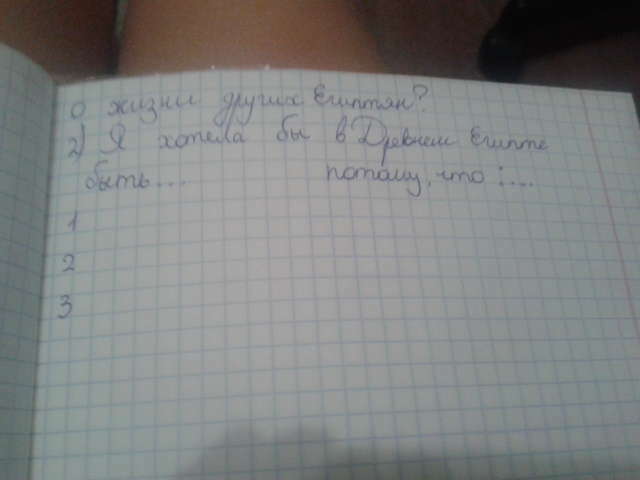 о жизни других Египтян?
2) Я хотела бы в Древнем Египте
быть... потому, что :....
1
2
3